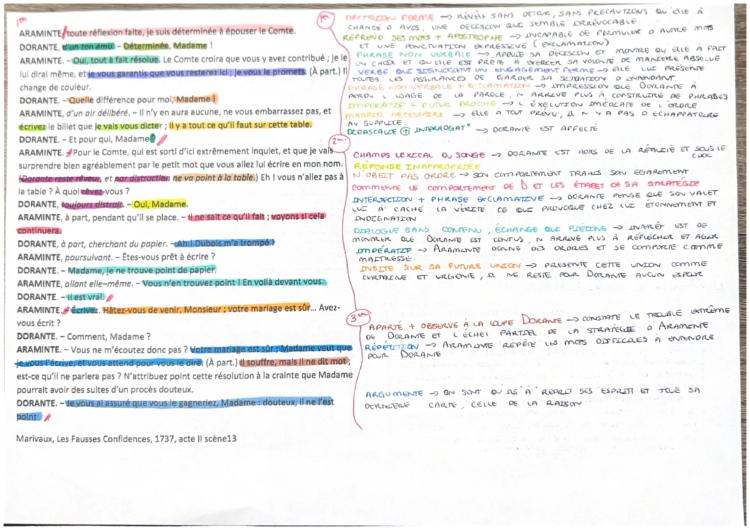 ARAMINTE, toute réflexion faite, je suis déterminée à épouser le Comte.
DORANTE, d'un ton ému. – Déterminée, Madame !
ARAMINTE. – Oui, tout à fait résolue. Le Comte croira que vous y avez contribué ; je le
lui dirai même, et je vous garantis que vous resterez ici ; je vous le promets. (À part.) Il
change de couleur.
DORANTE. – Quelle différence pour moi, Madame !
ARAMINTE, d'un air délibéré. – Il n'y en aura aucune, ne vous embarrassez pas, et
écrivez le billet que je vais vous dicter ; il y a tout ce qu'il faut sur cette table.
DORANTE. – Et pour qui, Madame
ARAMINTE. Pour le Comte, qui est sorti d'ici extrêmement inquiet, et que je vais
surprendre bien agréablement par le petit mot que vous allez lui écrire en mon nom.
(Dorante reste rêveur, et par distraction ne va point à la table.) Eh ! vous n'allez pas à
la table ? À quoi rêvez-vous ?
DORANTE, toujours distrait. – Oui, Madame.
ARAMINTE, à part, pendant qu'il se place. – Il ne sait ce qu'il fait ; voyons si cela
continuera.
DORANTE, à part, cherchant du papier. – Ah ! Dubois m'a trompé !
ARAMINTE, poursuivant. – Êtes-vous prêt à écrire ?
DORANTE. – Madame, je ne trouve point de papier.
ARAMINTE, allant elle-même. – Vous n'en trouvez point ! En voilà devant vous.
DORANTE. – Il est vrai.
ARAMINTE. écrivez. Hâtez-vous de venir, Monsieur ; votre mariage est sûr... Avez-
vous écrit ?
DORANTE. – Comment, Madame ?
ARAMINTE. – Vous ne m'écoutez donc pas ? Votre mariage est sûr ; Madame veut que
je vous l'écrive, et vous attend pour vous le dire. (À part.) Il souffre, mais il ne dit mot ;
est-ce qu'il ne parlera pas ? N'attribuez point cette résolution à la crainte que Madame
pourrait avoir des suites d'un procès douteux.
DORANTE. – Je vous ai assuré que vous le gagneriez, Madame : douteux, il ne l'est
point.
Marivaux, Les Fausses Confidences, 1737, acte II scène13
1er
→ RÉVÈLE SANS DÉTOUR, SANS PRÉCAUTIONS QU'ELLE A
CHANGÉ D'AVIS, UNE DÉCISION QUI SEMBLE IRRÉVOCABLE.
REPREND SES MOTS + APOSTROPHE → INCAPABLE DE FORMULER D'AUTRE MOTS
ET UNE PONCTUATION EXPRESSIVE (EXCLAMATION)
PHRASE NON VERBALE → APPUIE SA DÉCISION ET MONTRE QU'ELLE A FAIT
UN CHOIX ET QU'ELLE EST PRÊTE À EXERCER SA VOLONTÉ DE MANIÈRE ABSOLUE
VERBE QUI SIGNIFIENT UN ENGAGEMENT FERME → ELLE LUI PRÉSENTE
TOUTES LES ASSURANCES DE GARDER SA SITUATION D'INTENDANT.
PHRASE NON VERBALE + EXCLAMATION → IMPRESSION QUE DORANTE A
PERDU L'USAGE DE LA PAROLE, N'ARRIVE PLUS À CONSTRUIRE DE PHRASES
IMPÉRATIF + FUTUR PROCHE → L'EXÉCUTION IMMÉDIATE DE L'ORDRE
MATÉRIEL NÉCESSAIRE → ELLE A TOUT PRÉVU, IL N'Y A PAS D'ÉCHAPPATOIRE
AU SUPPLICE.
DIDASCALIE + INTERROGAT° → DORANTE EST AFFECTÉ
2ème
CHAMPS LEXICAL DU SONGE → DORANTE EST HORS DE LA RÉALITÉ ET SOUS LE
CHOC
RÉPONSE INAPPROPRIÉE
N'OBÉIT PAS ORDRE → SON COMPORTEMENT TRAHIS SON ÉGAREMENT
COMMENTE LE COMPORTEMENT DE D ET LES ÉTAPES DE SA STRATÉGIE
INTERJECTION + PHRASE EXCLAMATIVE → DORANTE PENSE QUE SON VALET
LUI A CACHÉ LA VÉRITÉ CE QUI PROVOQUE CHEZ LUI ÉTONNEMENT ET
INDIGNATION
DIALOGUE SANS CONTENU, ÉCHANGE QUI PIÉTINE → INTÉRÊT EST DE
MONTRER QUE DORANTE EST CONFUS, N'ARRIVE PLUS À RÉFLÉCHIR ET AGIR
IMPÉRATIF → ARAMINTE DONNE DES ORDRES ET SE COMPORTE COMME
MAITRESSE.
INSISTE SUR SA FUTURE UNION → PRÉSENTE CETTE UNION COMME
CERTAINE ET URGENTE, IL NE RESTE POUR DORANTE AUCUN ESPOIR
3ème
APARTÉ + OBSERVE À LA LOUPE DORANTE → CONSTATE LE TROUBLE EXTRÊME
DE DORANTE ET L'ÉCHEC PARTIEL DE LA STRATÉGIE D'ARAMINTE
RÉPÉTITION → ARAMINTE RÉPÈTE LES MOTS DIFFICILES À ENTENDRE
POUR DORANTE
ARGUMENTE → ON SENT QU'IL A REPRIS SES ESPRITS ET JOUE SA
DERNIÈRE CARTE, CELLE DE LA RAISON